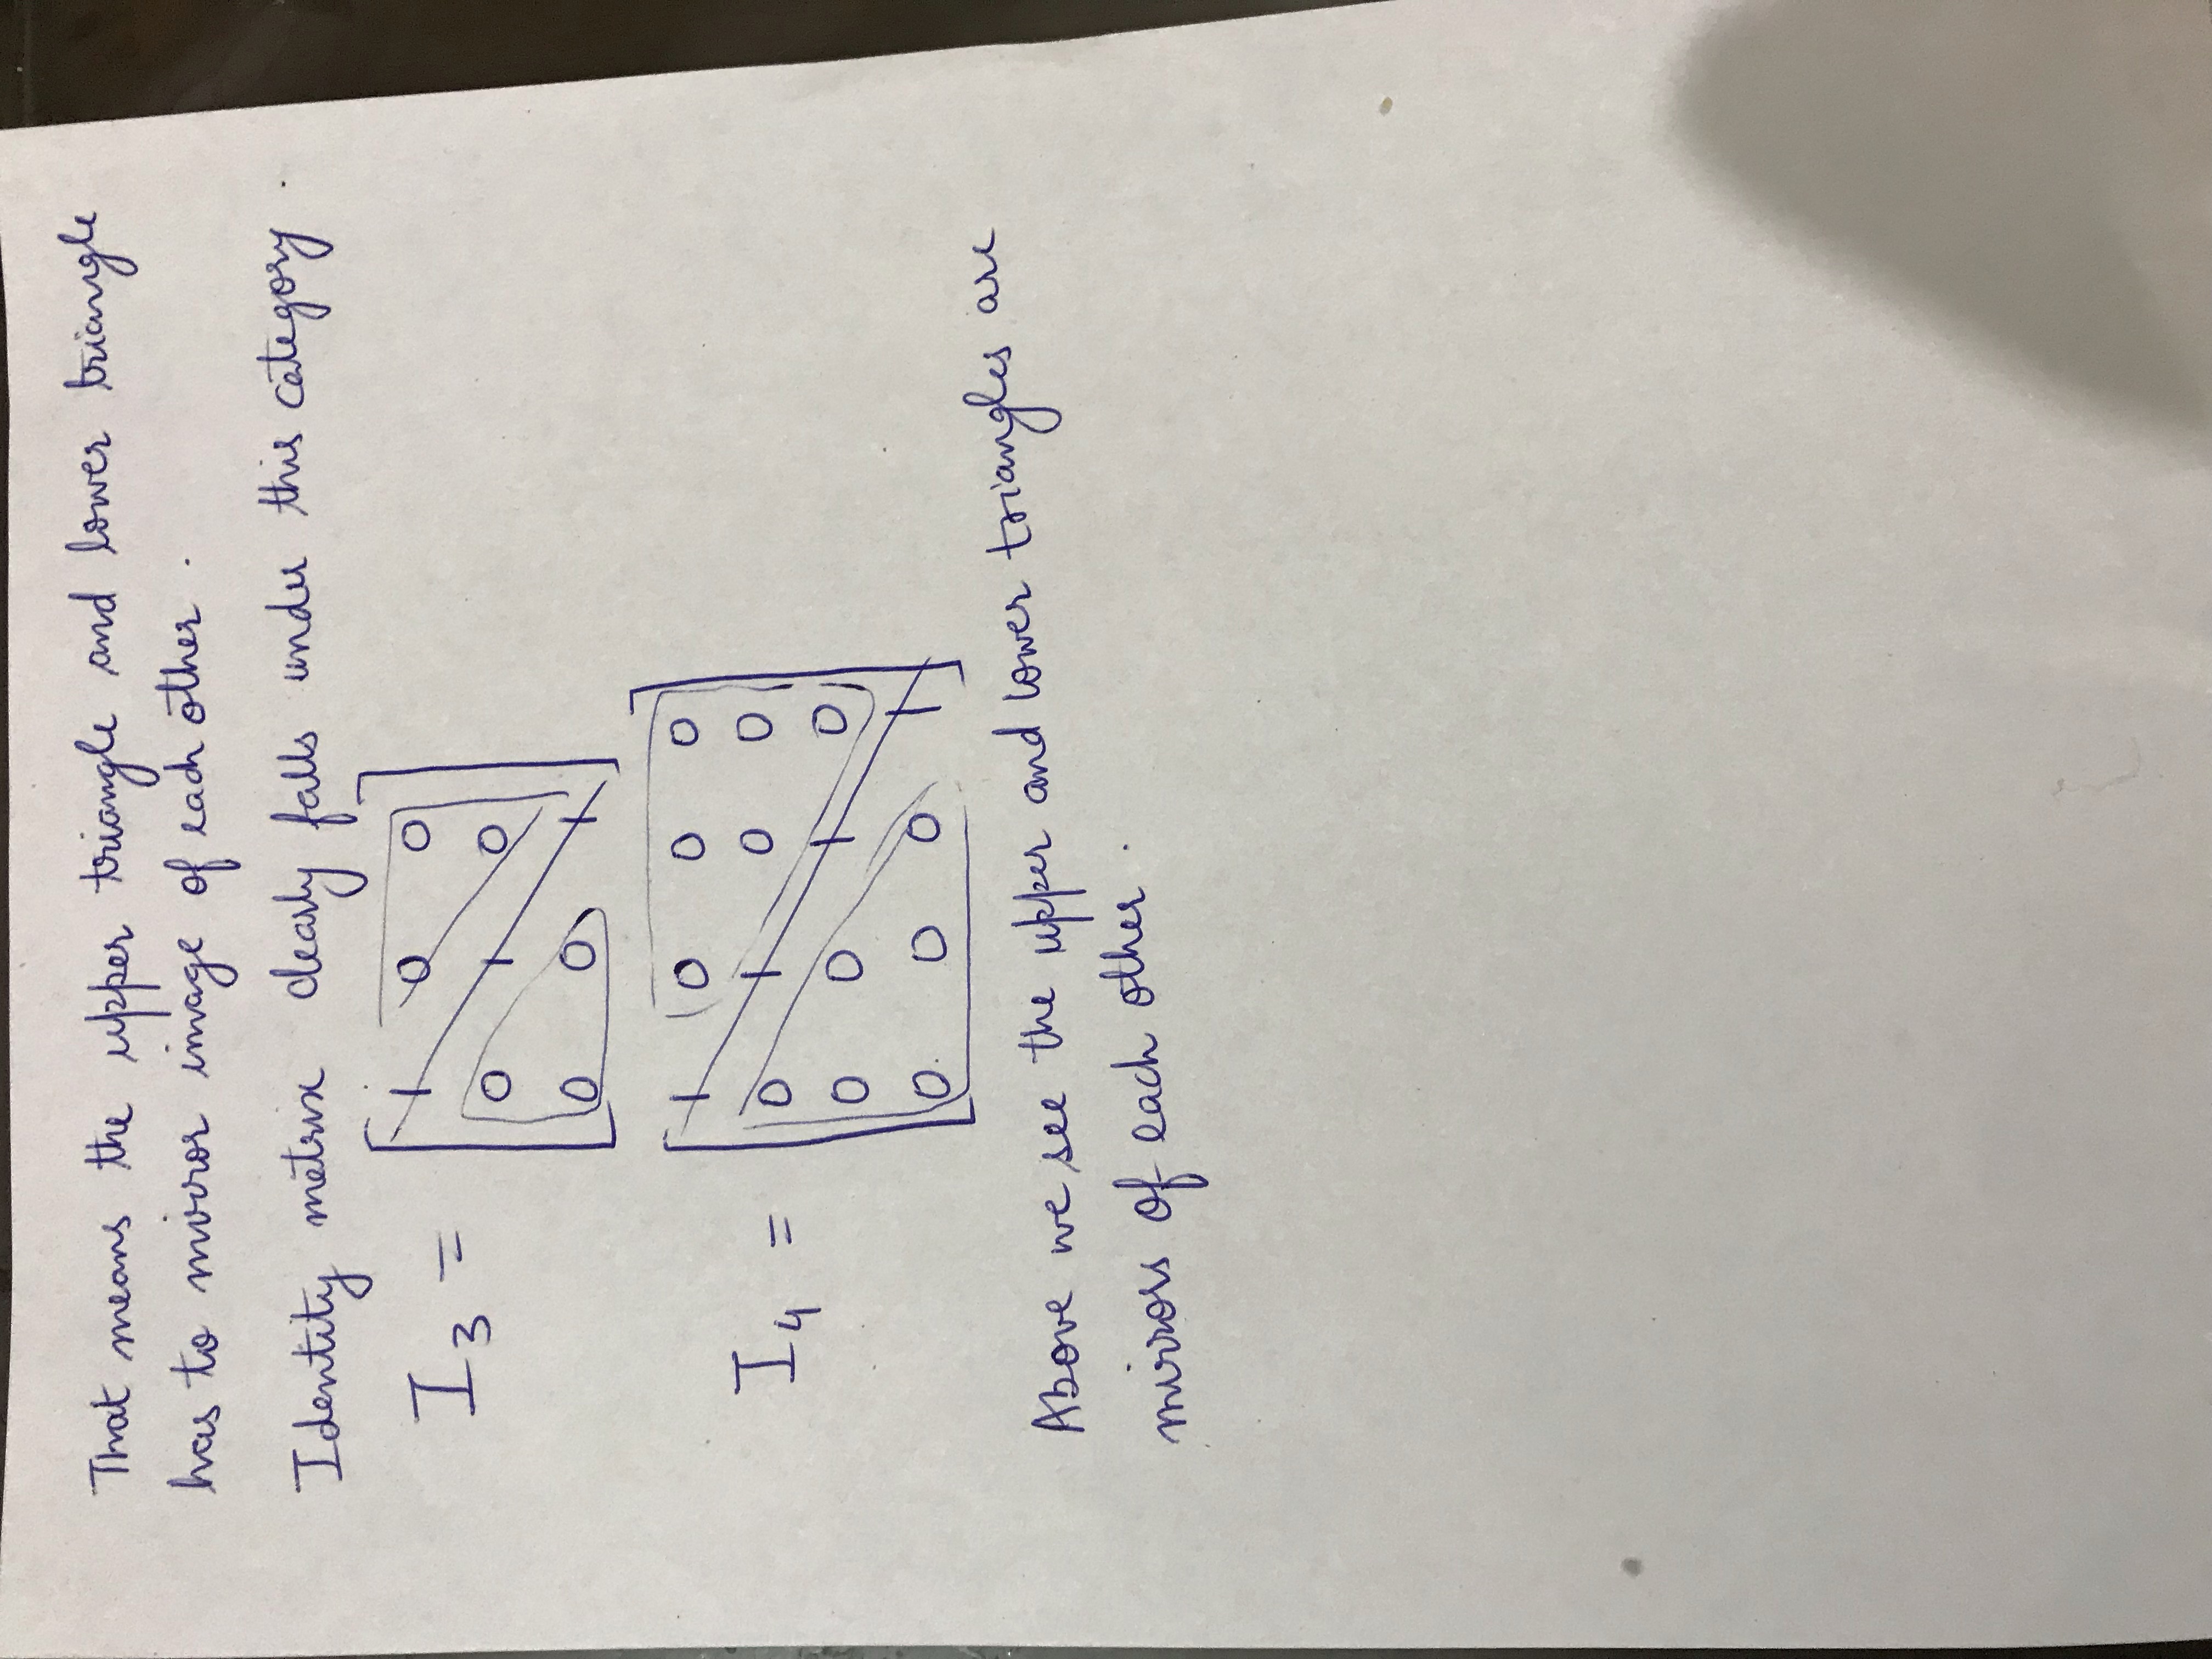 That means the upper triangle and lower triangle
has to mirror image of each other.
Identity matrix clearly falls under this category.
I₃ = [ 1 0 0
0 1 0
0 0 1 ]
I₄ = [ 1 0 0 0
0 1 0 0
0 0 1 0
0 0 0 1 ]
Above we see the upper and lower triangles are
mirrors of each other.